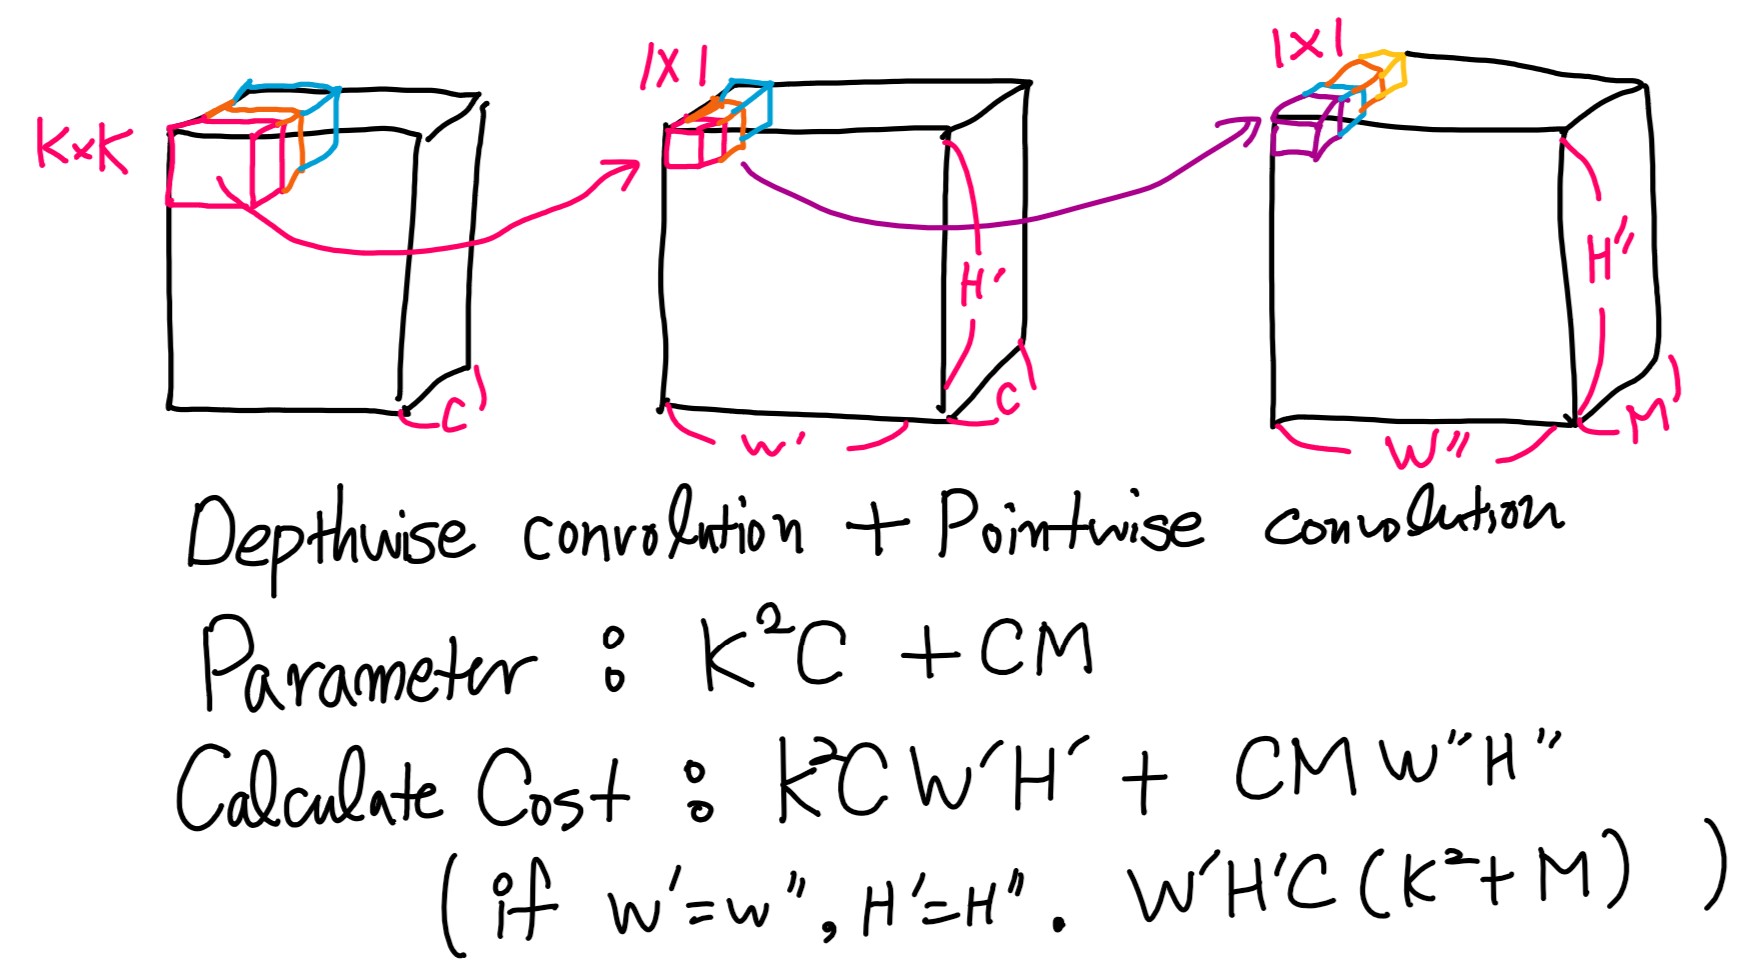 1x1
1x1
KxK
H'
H''
C
C
M
W'
W''
Depthwise convolution + Pointwise convolution
Parameter : K²C + CM
Calculate Cost : K²CW'H' + CMW''H''
(if w'=w'', H'=H''. W'H'C(K²+M) )